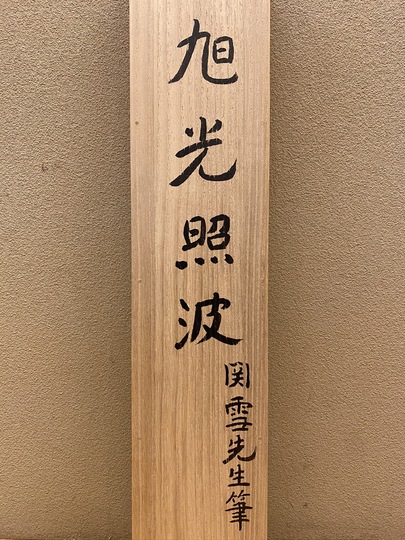 旭光照波
関雪先生筆